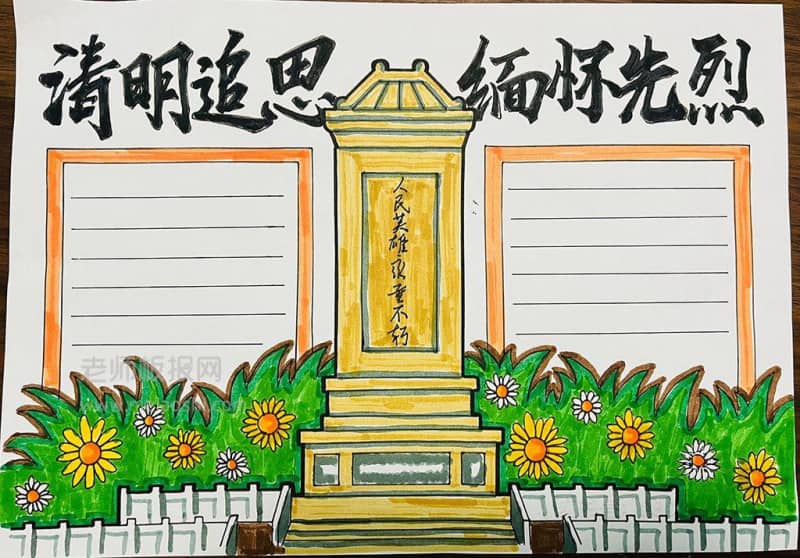 清明追思 缅怀先烈
人民英雄永垂不朽
老师板报网